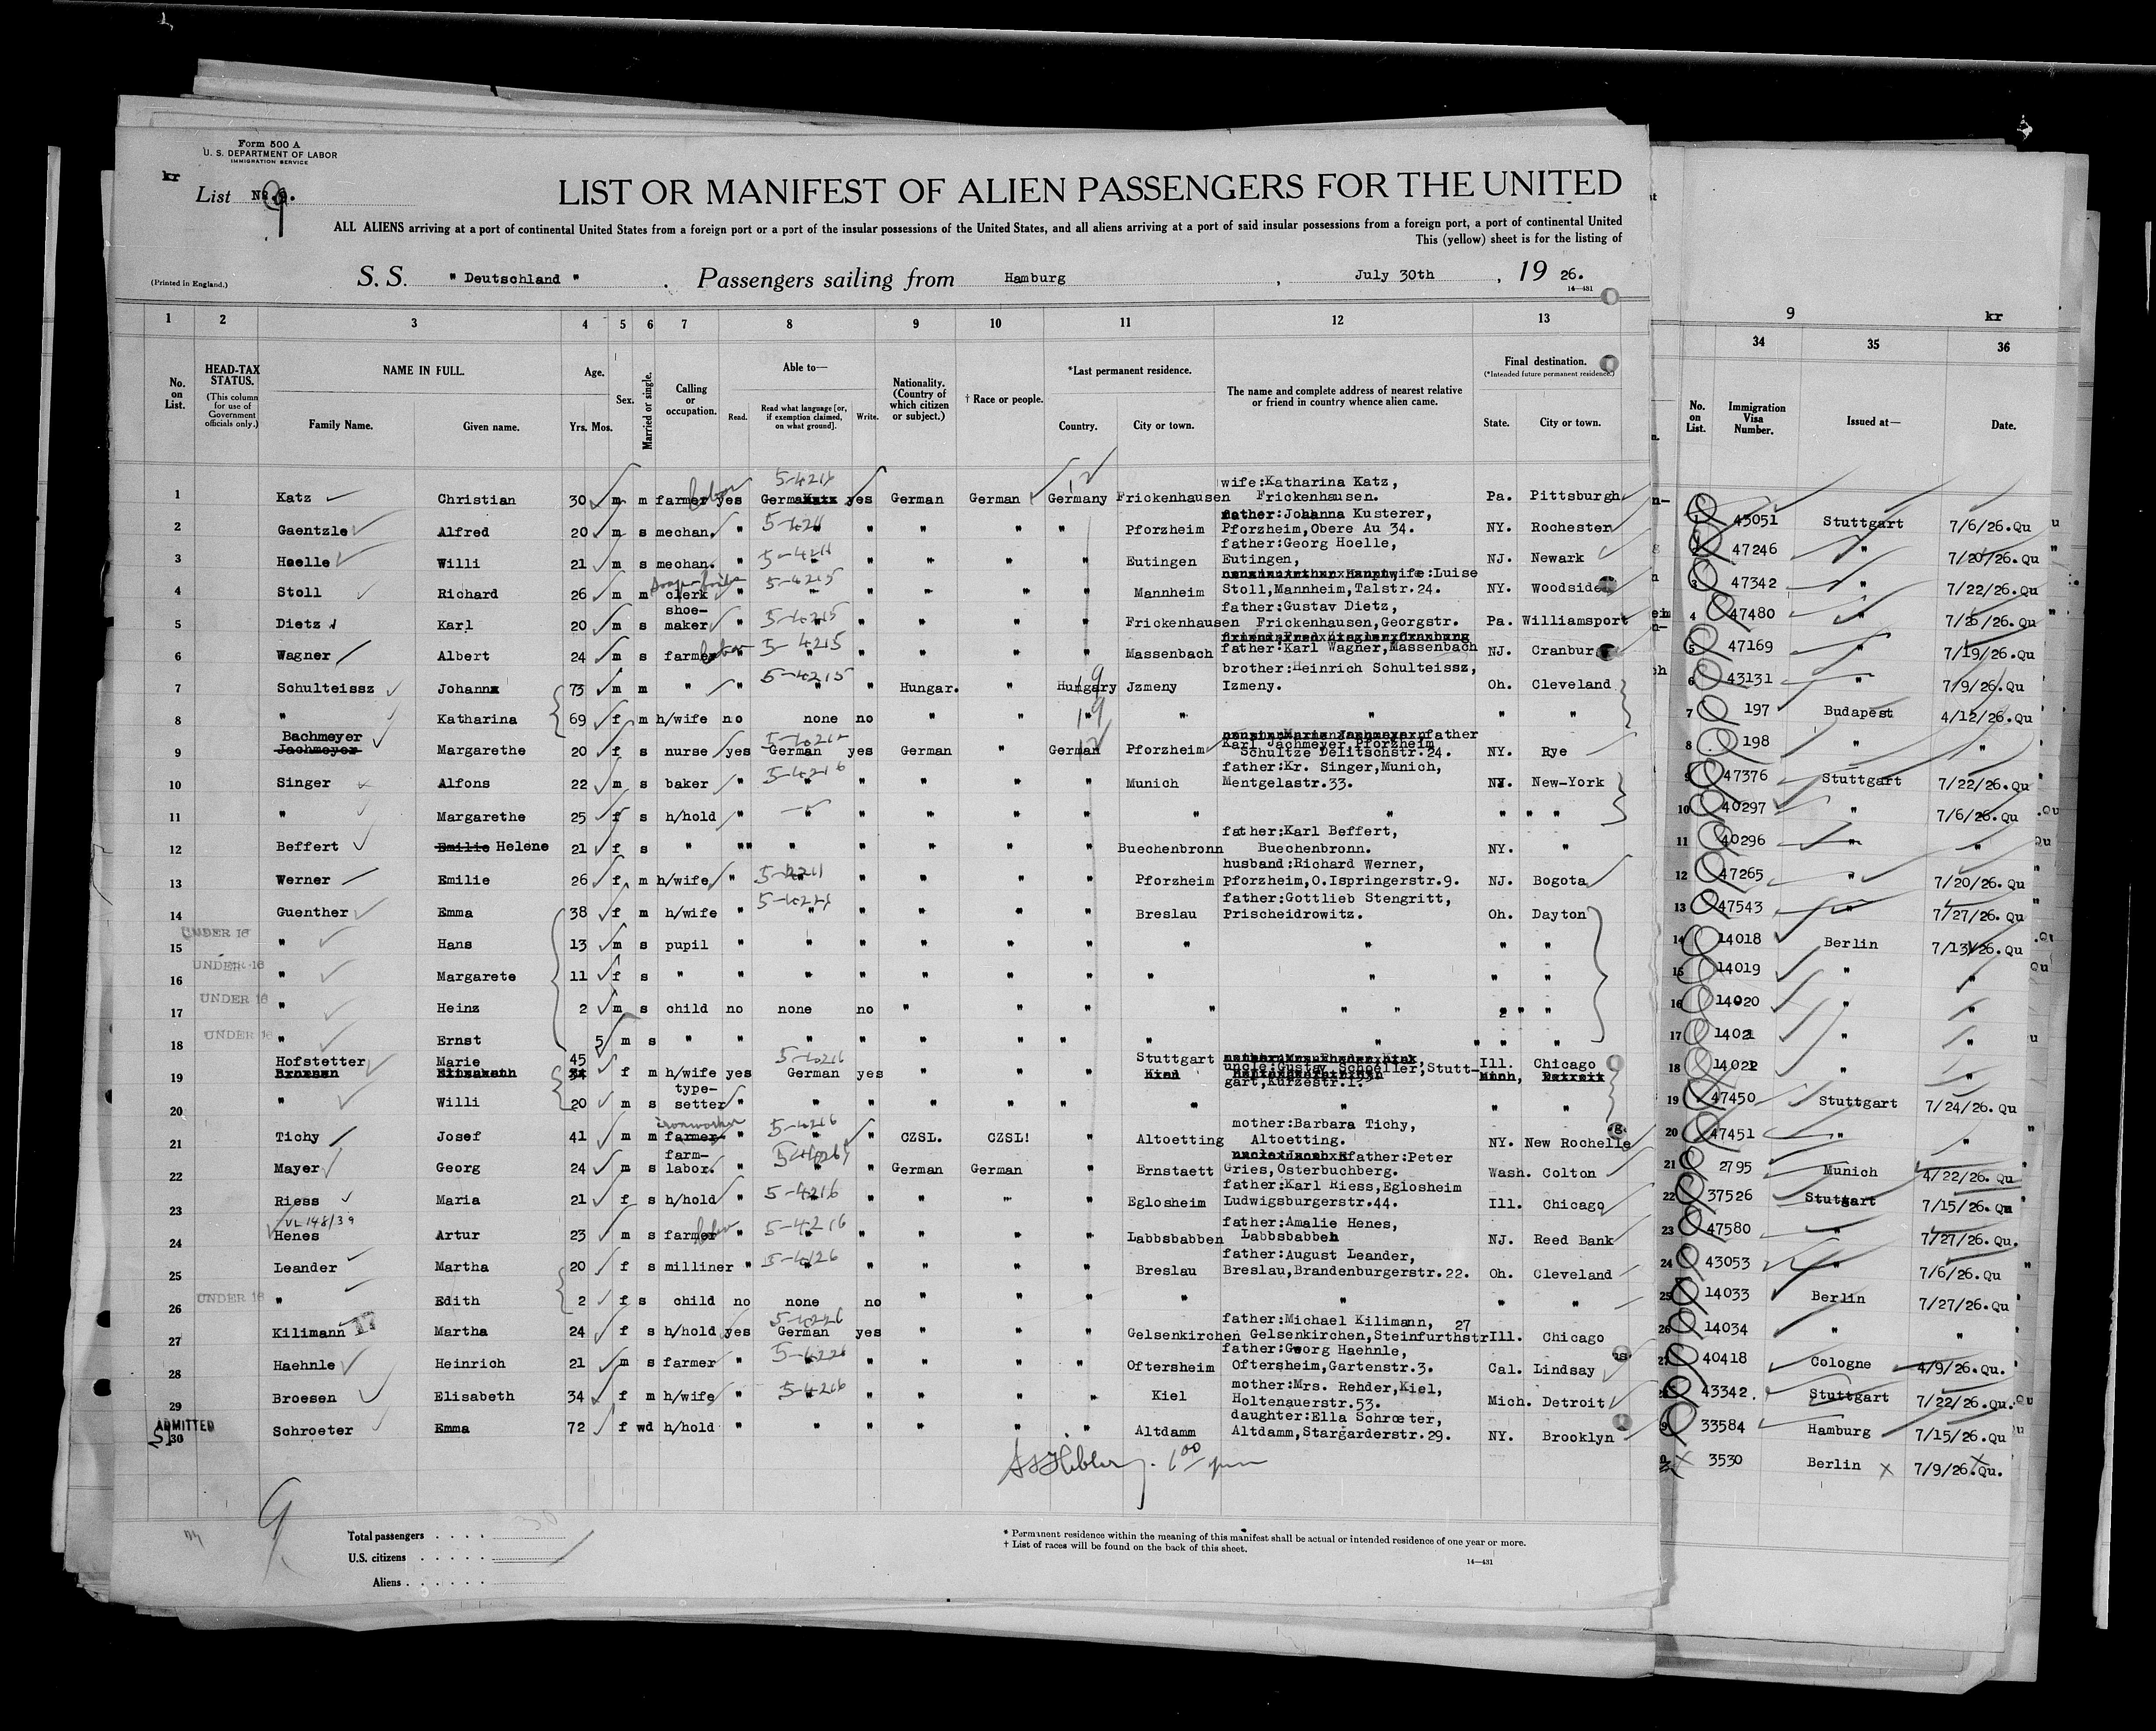 Form 500 A
U. S. DEPARTMENT OF LABOR
IMMIGRATION SERVICE
kr
List No. 9.
LIST OR MANIFEST OF ALIEN PASSENGERS FOR THE UNITED
ALL ALIENS arriving at a port of continental United States from a foreign port or a port of the insular possessions of the United States, and all aliens arriving at a port of said insular possessions from a foreign port, a port of continental United
This (yellow) sheet is for the listing of
(Printed in England.)
S. S. " Deutschland " . Passengers sailing from Hamburg , July 30th , 19 26.
14—431
1 2 3 4 5 6 7 8 9 10 11 12 13
No. on List.
HEAD-TAX STATUS. (This column for use of Government officials only.)
NAME IN FULL.
Family Name. Given name.
Age. Yrs. Mos.
Sex.
Married or single.
Calling or occupation.
Able to—
Read. Read what language [or, if exemption claimed, on what ground]. Write.
Nationality. (Country of which citizen or subject.)
† Race or people.
*Last permanent residence.
Country. City or town.
The name and complete address of nearest relative or friend in country whence alien came.
Final destination.
(*Intended future permanent residence.)
State. City or town.
1 Katz Christian 30 m m farmer labor yes German 5-4216 yes German German Germany Frickenhausen wife:Katharina Katz, Frickenhausen. Pa. Pittsburgh
2 Gaentzle Alfred 20 m s mechan. " " " " " " Pforzheim father:Johanna Kusterer, Pforzheim,Obere Au 34. NY. Rochester
3 Hoelle Willi 21 m s mechan. " " " " " " Eutingen father:Georg Hoelle, Eutingen, NJ. Newark
4 Stoll Richard 26 m m clerk " 5-4215 " " " " " Mannheim wife:Luise Stoll,Mannheim,Talstr.24. NY. Woodside
5 Dietz Karl 20 m s shoe-maker " 5-4215 " " " " " Frickenhausen father:Gustav Dietz, Frickenhausen,Georgstr. Pa. Williamsport
6 Wagner Albert 24 m s farmer labor " 5-4215 " " " " " Massenbach father:Karl Wagner,Massenbach NJ. Cranbur
7 Schulteissz Johann 73 m m " " 5-4215 " " Hungar. " Hungary Jzmeny brother:Heinrich Schulteissz, Izmeny. Oh. Cleveland
8 " Katharina 69 f m h/wife no none no " " " " " " "
9 Bachmeyer Jachmeyer Margarethe 20 f s nurse yes German yes German " German Pforzheim father Karl Jachmeyer Pforzheim Schultze Delitschstr.24. NY. Rye
10 Singer Alfons 22 m s baker " 5-4216 " " " " " Munich father:Kr. Singer,Munich, Mentgelastr.33. NY. New-York
11 " Margarethe 25 f s h/hold " " " " " " " " " " "
12 Beffert Emilie Helene 21 f s " "" " " " " " Buechenbronn father:Karl Beffert, Buechenbronn. NY. "
13 Werner Emilie 26 f m h/wife " " " " " " Pforzheim husband:Richard Werner, Pforzheim,O.Ispringerstr.9. NJ. Bogota
14 Guenther Emma 38 f m h/wife " " " " " " Breslau father:Gottlieb Stengritt, Prischeidrowitz. Oh. Dayton
UNDER 16
15 " Hans 13 m s pupil " " " " " " " " " "
UNDER 16
16 " Margarete 11 f s " " " " " " " " " " "
UNDER 16
17 " Heinz 2 m s child no none no " " " " " " " "
UNDER 16
18 " Ernst 5 m s " " " " " " " " " " "
19 Hofstetter Marie 45 f m h/wife yes German 5-4216 yes " " " Stuttgart uncle:Gustav Schoeller,Stuttgart,Kurzestr.1. Ill. Chicago
20 " Willi 20 m s type-setter " " " " " " " " " "
21 Tichy Josef 41 m m farmer ironworker " 5-4216 " " CZSL. CZSL! " Altoetting mother:Barbara Tichy, Altoetting. NY. New Rochelle
22 Mayer Georg 24 m s farm-labor. " " " German German " Ernstaett father:Peter Gries,Osterbuchberg. Wash. Colton
23 Riess Maria 21 f s h/hold " 5-4216 " " " " " Eglosheim father:Karl Riess,Eglosheim Ludwigsburgerstr.44. Ill. Chicago
VL 148/39
24 Henes Artur 23 m s farmer labor " 5-4216 " " " " " Labbsbabben father:Amalie Henes, Labbsbabben NJ. Reed Bank
25 Leander Martha 20 f s milliner " " " " " " Breslau father:August Leander, Breslau,Brandenburgerstr.22. Oh. Cleveland
UNDER 16
26 " Edith 2 f s child no none no " " " " " " "
27 Kilimann Martha 24 f s h/hold yes German yes " " " Gelsenkirchen father:Michael Kilimann, Gelsenkirchen,Steinfurthstr 27 Ill. Chicago
28 Haehnle Heinrich 21 m s farmer " " " " " " Oftersheim father:Georg Haehnle, Oftersheim,Gartenstr.3. Cal. Lindsay
29 Broesen Elisabeth 34 f m h/wife " 5-4216 " " " " " Kiel mother:Mrs. Rehder,Kiel, Holtenauerstr.53. Mich. Detroit
ADMITTED
30 Schroeter Emma 72 f wd h/hold " " " " " " Altdamm daughter:Ella Schroeter, Altdamm,Stargarderstr.29. NY. Brooklyn
9
Total passengers . . . . 30
U.S. citizens . . . . .
Aliens . . . . . .
* Permanent residence within the meaning of this manifest shall be actual or intended residence of one year or more.
† List of races will be found on the back of this sheet.
14—431
9 kr
34 35 36
No. on List. Immigration Visa Number. Issued at— Date.
1 43051 Stuttgart 7/6/26.Qu
2 47246 " 7/20/26.Qu
3 47342 " 7/22/26.Qu
4 47480 " 7/26/26.Qu
5 47169 " 7/19/26.Qu
6 43131 " 7/9/26.Qu
7 197 Budapest 4/12/26.Qu
8 198 " "
9 47376 Stuttgart 7/22/26.Qu
10 40297 " 7/6/26.Qu
11 40296 " "
12 47265 " 7/20/26.Qu
13 47543 " 7/27/26.Qu
14 14018 Berlin 7/13/26.Qu
15 14019 " "
16 14020 " "
17 14021 " "
18 14022 " "
19 47450 Stuttgart 7/24/26.Qu
20 47451 " "
21 2795 Munich 4/22/26.Qu
22 37526 Stuttgart 7/15/26.Qu
23 47580 " 7/27/26.Qu.
24 43053 " 7/6/26.Qu
25 14033 Berlin 7/27/26.Qu
26 14034 " "
27 40418 Cologne 4/9/26.Qu.
28 43342. Stuttgart 7/22/26.Qu.
29 33584 Hamburg 7/15/26.Qu
3530 Berlin 7/9/26.Qu.